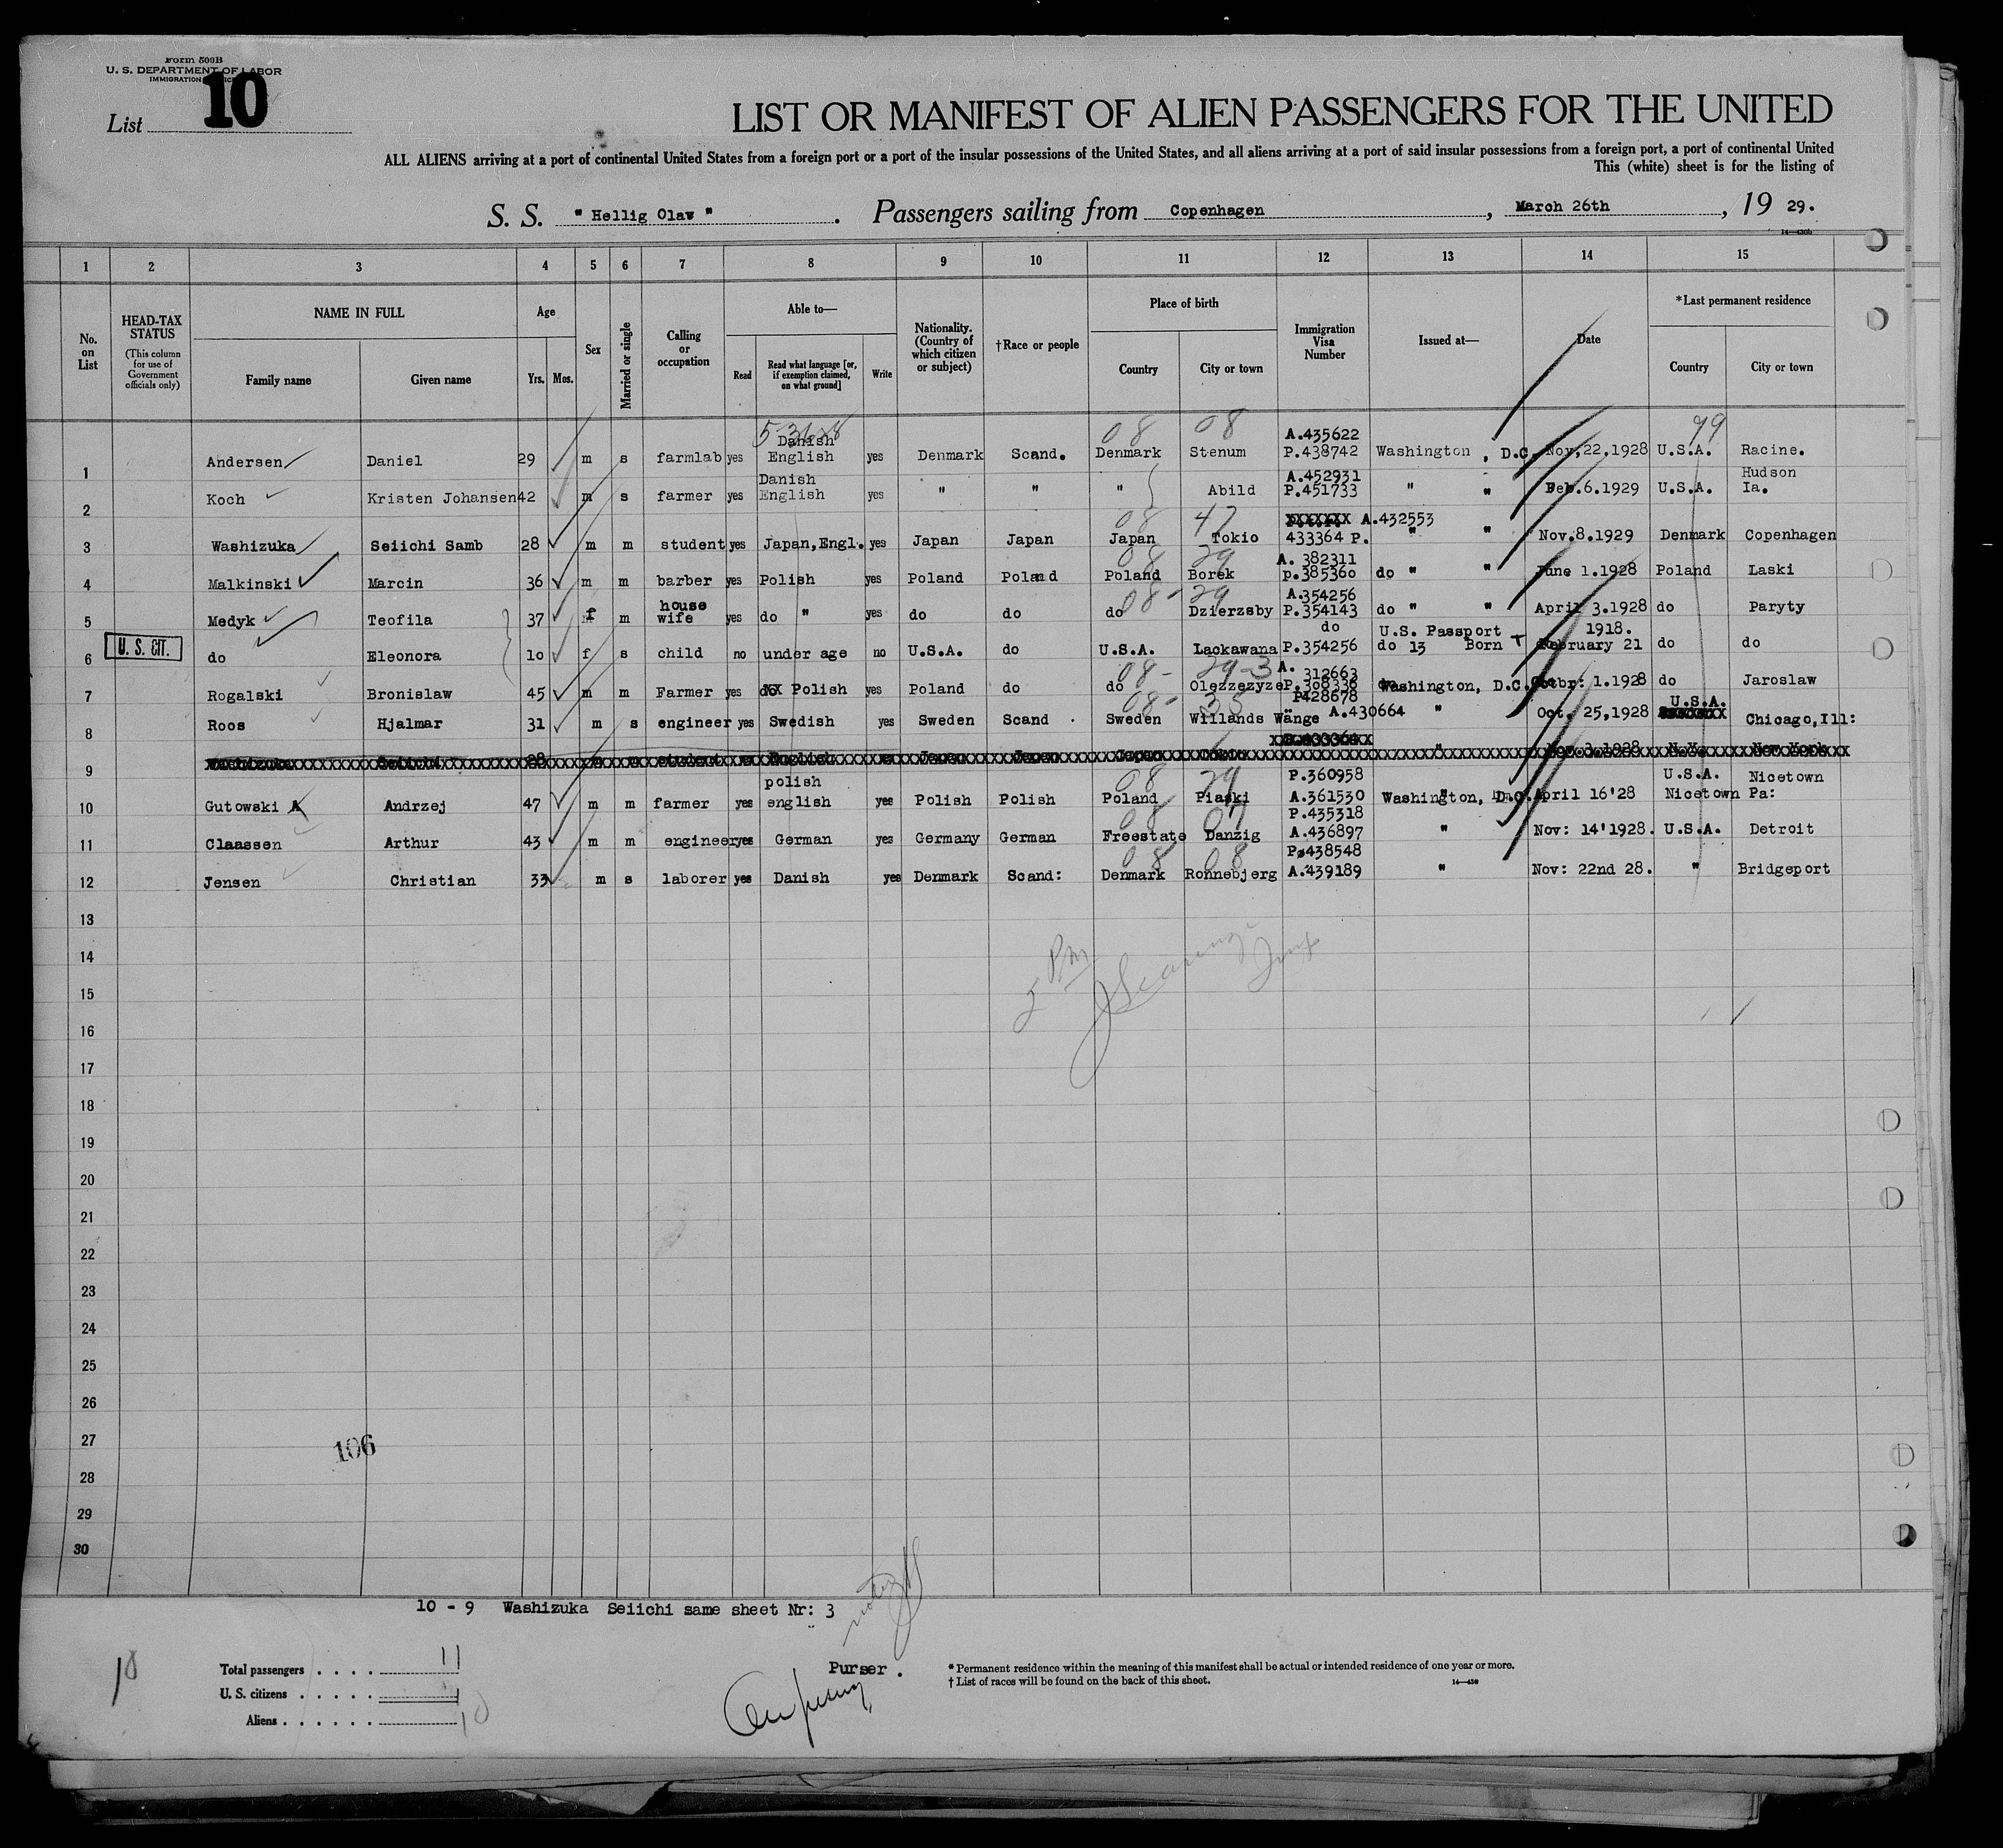 Form 500B
U. S. DEPARTMENT OF LABOR
IMMIGRATION
List 10
LIST OR MANIFEST OF ALIEN PASSENGERS FOR THE UNITED
ALL ALIENS arriving at a port of continental United States from a foreign port or a port of the insular possessions of the United States, and all aliens arriving at a port of said insular possessions from a foreign port, a port of continental United
This (white) sheet is for the listing of
S. S. " Hellig Olav " . Passengers sailing from Copenhagen , March 26th , 19 29.
14—430b
1 2 3 4 5 6 7 8 9 10 11 12 13 14 15
No. on List
HEAD-TAX STATUS (This column for use of Government officials only)
NAME IN FULL Family name Given name
Age Yrs. Mos.
Sex
Married or single
Calling or occupation
Able to— Read Read what language [or, if exemption claimed, on what ground] Write
Nationality. (Country of which citizen or subject)
†Race or people
Place of birth Country City or town
Immigration Visa Number
Issued at—
Date
*Last permanent residence Country City or town
08 08 99
Danish A.435622
1 Andersen Daniel 29 m s farmlab yes English yes Denmark Scand. Denmark Stenum P.438742 Washington , D.C. Nov,22,1928 U.S.A. Racine.
Danish A.452931 Hudson
2 Koch Kristen Johansen 42 m s farmer yes English yes " " " Abild P.451733 " " Feb.6.1929 U.S.A. Ia.
08 47 A.432553
3 Washizuka Seiichi Samb 28 m m student yes Japan,Engl. yes Japan Japan Japan Tokio 433364 P. " " Nov.8.1929 Denmark Copenhagen
08 29 A. 382311
4 Malkinski Marcin 36 m m barber yes Polish yes Poland Poland Poland Borek p.385360 do " " June 1.1928 Poland Laski
house 08- 29 A.354256
5 Medyk Teofila 37 f m wife yes do " yes do do do Dzierzsby P.354143 do " " April 3.1928 do Paryty
do U.S. Passport 1918.
U. S. CIT.
6 do Eleonora 10 f s child no under age no U.S.A. do U.S.A. Lackawana P.354256 do 13 Born February 21 do do
08- 29-3 A. 312663
7 Rogalski Bronislaw 45 m m Farmer yes Polish yes Poland do do Olezzezyze P.308336 Washington, D.C. Octbr: 1.1928 do Jaroslaw
08- 35 P428678 U.S.A.
8 Roos Hjalmar 31 m s engineer yes Swedish yes Sweden Scand . Sweden Willands Wänge A.430664 " Oct. 25,1928 Chicago,Ill:
9 Washizuka Seiichi 28 student English Japan Japan Japan Tokio P.433364 " Nov.3.1928 N.Y. New York
polish 08 29 P.360958 U.S.A. Nicetown
10 Gutowski A Andrzej 47 m m farmer yes english yes Polish Polish Poland Piaski A.361530 Washington, D.C. April 16'28 Nicetown Pa:
08 07 P.435318
11 Claassen Arthur 43 m m engineer yes German yes Germany German Freestate Danzig A.436897 " Nov: 14'1928. U.S.A. Detroit
08 08 P.438548
12 Jensen Christian 33 m s laborer yes Danish yes Denmark Scand: Denmark Ronnebjerg A.439189 " Nov: 22nd 28. " Bridgeport
13
14
15
16
17
18
19
20
21
22
23
24
25
26
27
106
28
29
30
10 - 9 Washizuka Seiichi same sheet Nr: 3
10
Total passengers . . . . 11
U. S. citizens . . . . . 1
Aliens . . . . . . 10
Purser .
* Permanent residence within the meaning of this manifest shall be actual or intended residence of one year or more.
† List of races will be found on the back of this sheet.
14—430